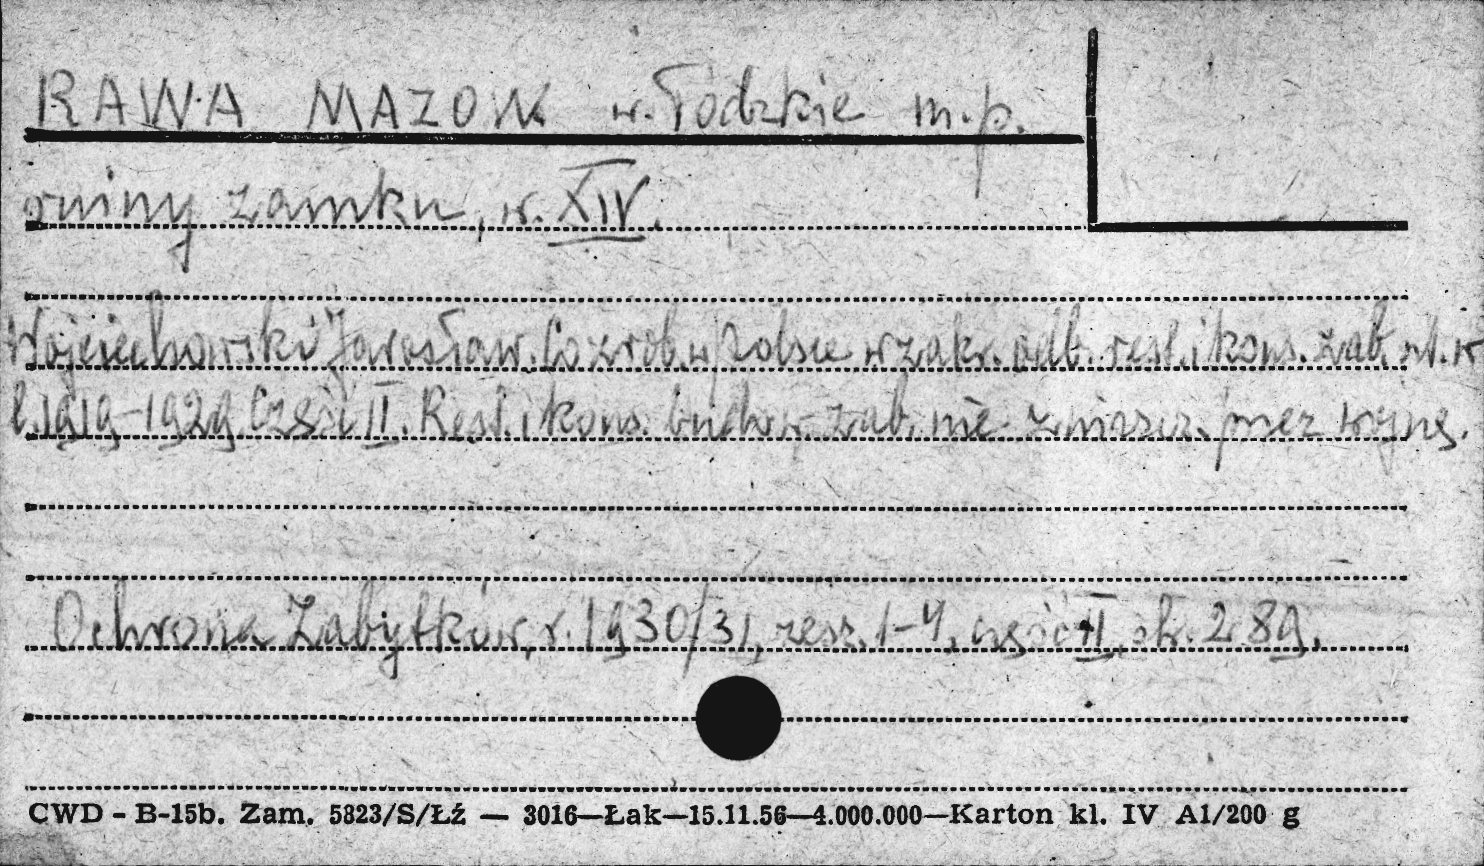 RAWA MAZOW. w. Łódzkie m.p.
ruiny zamku, w. XIV.
Wojciechowski Jarosław. Co zrob. w Polsce w zakr. odb. rest. i kons. zab. szt. w
l. 1919-1929 Część II. Rest. i kons. budow. zab. nie zniszcz. przez wojnę.
Ochrona Zabytków, r. 1930/31, zesz. 1-4, część II, str. 289.
CWD - B-15b. Zam. 5823/S/Łź — 3016—Łak—15.11.56—4.000.000—Karton kl. IV A1/200 g